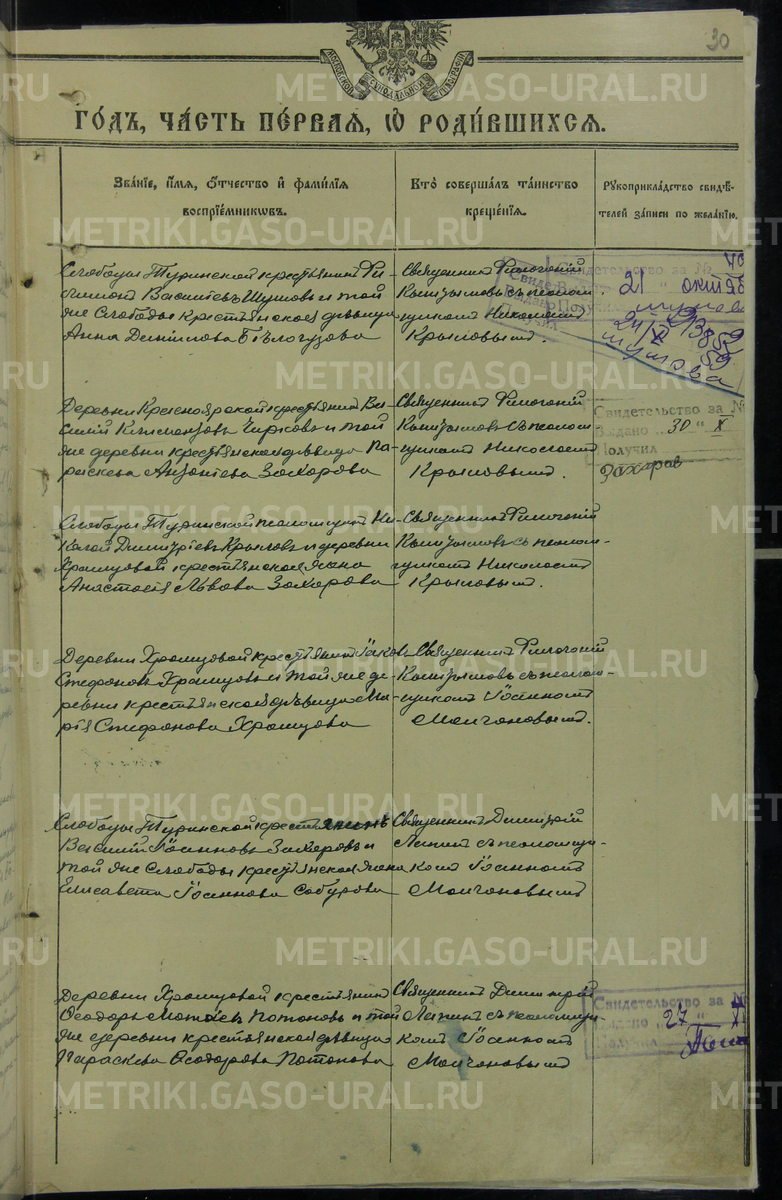 30
МОСКОВСКОЙ СѴНОДАЛЬНОЙ ТИПОГРАФІИ
ГО́ДЪ, ЧА́СТЬ ПЕ́РВАЯ, Ѡ҆ РОДИ́ВШИХСЯ.
Зва́нїе, и҆́мя, ѻ҆́тчество и҆ фами́лїя
воспрїе́мникѡвъ.
Кто̀ соверша́лъ та́инство
креще́нїя.
Рꙋкоприкла́дство свидѣ́-
телей за́писи по жела́нїю.
Слободы Туринской крестьянинъ Фи-
лимонъ Васильевъ Шумовъ и той
же Слободы крестьянская дѣвица
Анна Данилова Бѣлогузова
Священникъ Филогоній
Кыштымовъ съ псалом-
щикомъ Николаемъ
Крыловымъ.
Свидетельство за №
21 октяб
24/X
59
Шумова
Деревни Красноярской крестьянинъ Ва-
силій Климентовъ Чирковъ и той
же деревни крестьянская дѣвица Па-
раскева Захарова
Священникъ Филогоній
Кыштымовъ съ псалом-
щикомъ Николаемъ
Крыловымъ.
Свидетельство за №
Выдано 30 " X
Получил
Захаров
Слободы Туринской псаломщикъ Ни-
колай Димитріевъ Крыловъ и деревни
Храмцовой крестьянская жена
Анастасія Львова Захарова
Священникъ Филогоній
Кыштымовъ съ псалом-
щикомъ Николаемъ
Крыловымъ.
Деревни Храмцовой крестьянинъ Іаковъ
Стефановъ Храмцовъ и той же де-
ревни крестьянская дѣвица Ма-
рія Стефанова Храмцова
Священникъ Филогоній
Кыштымовъ съ псалом-
щикомъ Іоанномъ
Молчановымъ.
Слободы Туринской крестьянинъ
Василій Іоанновъ Захаровъ и
той же Слободы крестьянская жена
Елисавета Іоаннова Сабурова
Священникъ Димитрій
Ляпинъ съ псаломщи-
комъ Іоанномъ
Молчановымъ
Деревни Храмцовой крестьянинъ
Ѳеодоръ Потоповъ и той
же деревни крестьянская дѣвица
Параскева Ѳеодорова Потопова
Священникъ Димитрій
Ляпинъ съ псаломщи-
комъ Іоанномъ
Молчановымъ
Свидетельство за №
Выдано 27 " X
Получил
METRIKI.GASO-URAL.RU